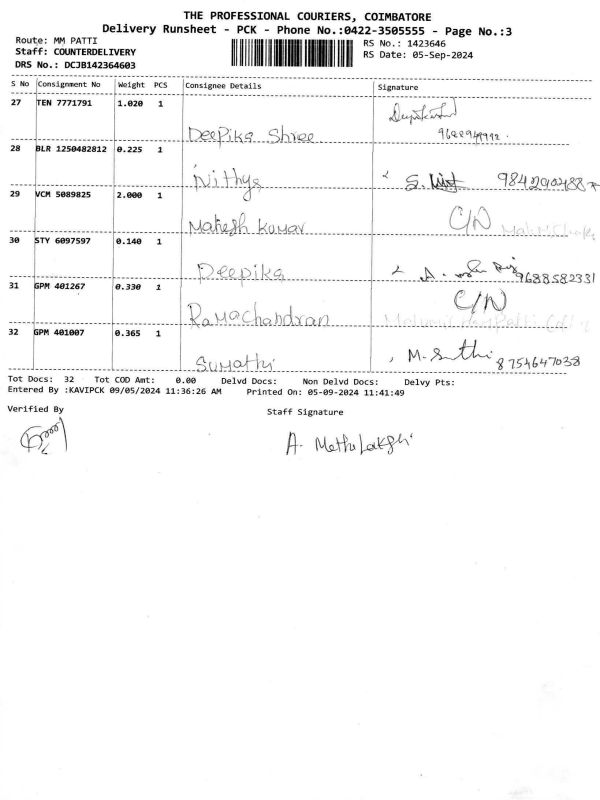 THE PROFESSIONAL COURIERS, COIMBATORE
Delivery Runsheet - PCK - Phone No.:0422-3505555 - Page No.:3
Route: MM PATTI
Staff: COUNTERDELIVERY
DRS No.: DCJB142364603
RS No.: 1423646
RS Date: 05-Sep-2024
S No Consignment No Weight PCS Consignee Details Signature
27 TEN 7771791 1.020 1
Deepika Shree
28 BLR 1250482812 0.225 1
Nithya S. 984290488
29 VCM 5089825 2.000 1 C/N
Mahesh Kumar
30 STY 6097597 0.140 1
Deepika A. 9688582331
31 GPM 401267 0.330 1 C/N
Ramachandran
32 GPM 401007 0.365 1
Sumathi M. 8754647038
Tot Docs: 32 Tot COD Amt: 0.00 Delvd Docs: Non Delvd Docs: Delvy Pts:
Entered By :KAVIPCK 09/05/2024 11:36:26 AM Printed On: 05-09-2024 11:41:49
Verified By Staff Signature
A.